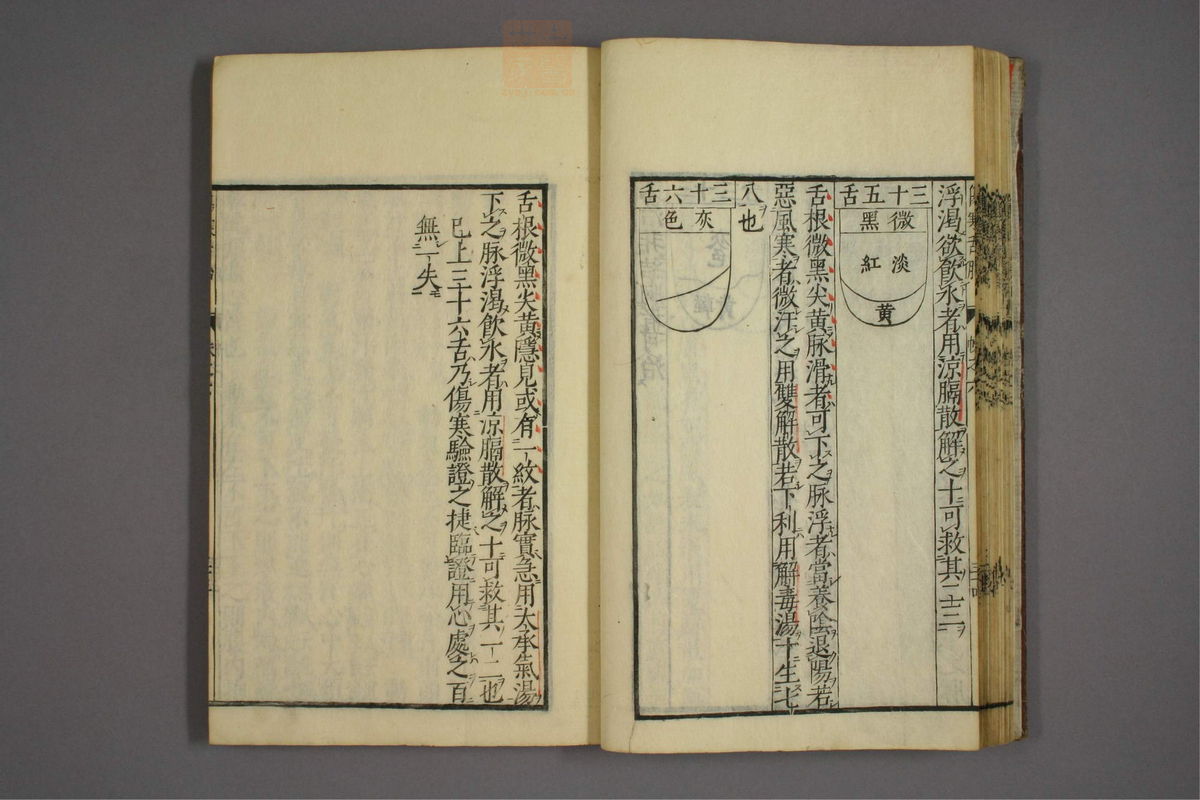 浮渴欲飲水者用涼膈散解之十可救其二三
三十五舌
微黑
淡紅
黃
舌根微黑尖黃脉滑者可下之脉浮者當養陰退陽若
惡風寒者微汗之用雙解散若下利用解毒湯十生七
八也
三十六舌
灰色
舌根微黑尖黃隱見或有一紋者脉實急用大承氣湯
下之脉浮渴飲水者用凉膈散解之十可救其一二也
已上三十六舌乃傷寒驗證之捷臨證用心處之百
無一失